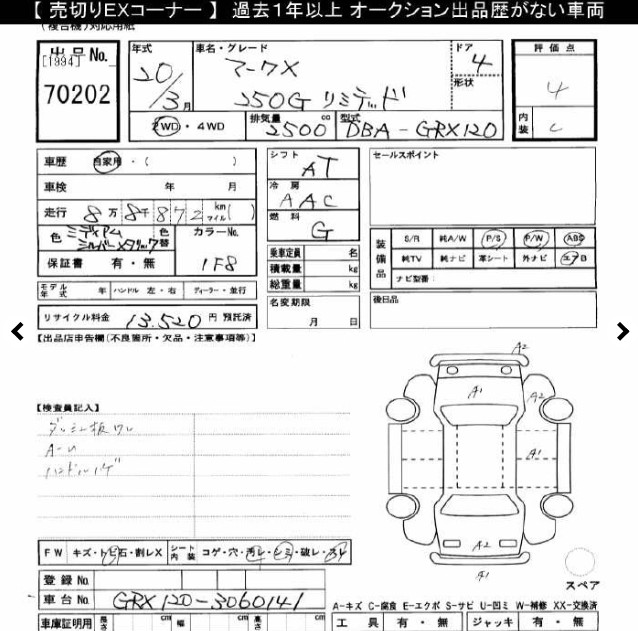 【 売切りEXコーナー 】 過去1年以上 オークション出品歴がない車両
(複合機)対応用紙
出品 No. [1994] 70202
年式 20/3月
車名・グレード マークX 250G リミテッド
ドア 4
形状
2WD・4WD
排気量 2500 cc
型式 DBA-GRX120
評価点 4
内装 C
車歴 自家用・( )
車検 年 月
走行 8万8千872 km マイル( )
色 ミディアムシルバーメタリック 色替
カラーNo. 1F8
保証書 有・無
モデル年式 年 ハンドル 左・右 ディーラー・並行
リサイクル料金 13,520 円 預託済
シフト AT
冷房 AAC
燃料 G
乗車定員 名
積載量 kg
総重量 kg
名変期限 月 日
セールスポイント
装備品 S/R 純A/W P/S P/W ABS
純TV 純ナビ 革シート 外ナビ エアB
ナビ型番:
後日品
【出品店申告欄(不良箇所・欠品・注意事項等)】
【検査員記入】
ダッシュ板ワレ
A-U
ハンドルハゲ
A2
A1
A2
A1
A2
A1
スペア
FW キズ・トビ石・割レX シート内装 コゲ・穴・汚レ・シミ・破レ・スレ
登録 No.
車台 No. GRX120-3060141
A-キズ C-腐食 E-エクボ S-サビ U-凹ミ W-補修 XX-交換済
車庫証明用 長さ cm 幅 cm 高さ cm
工具 有・無 ジャッキ 有・無